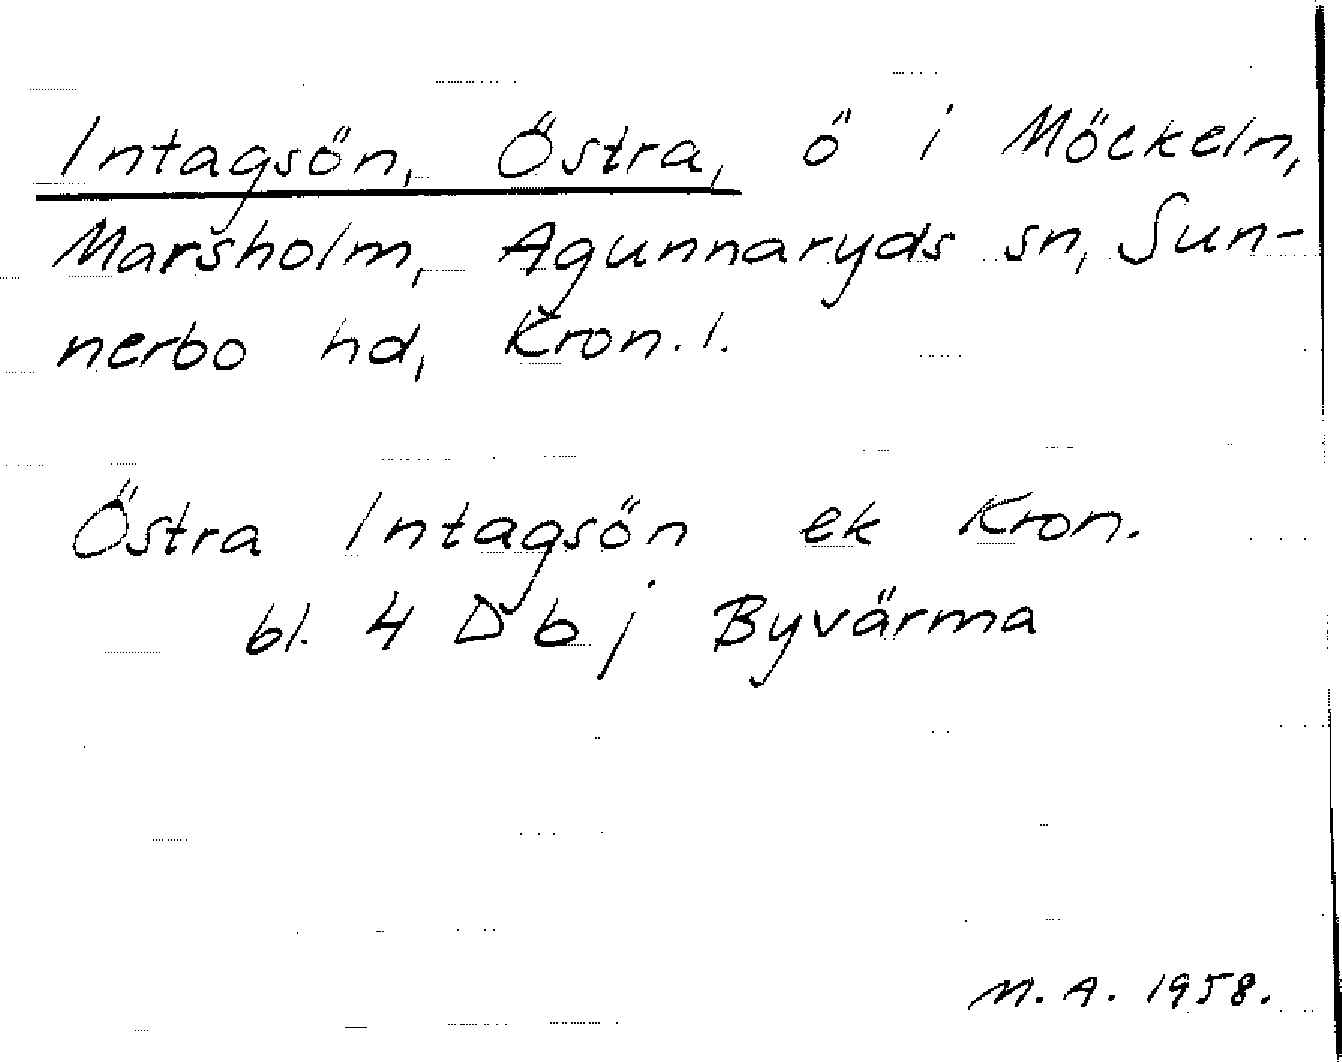 Intagsön, Östra, ö i Möckeln,
Marsholm, Agunnaryds sn, Sun-
nerbo hd, Kron. l.
Östra Intagsön ek Kron.
bl. 4 D b j Byvärma
M. A. 1958.